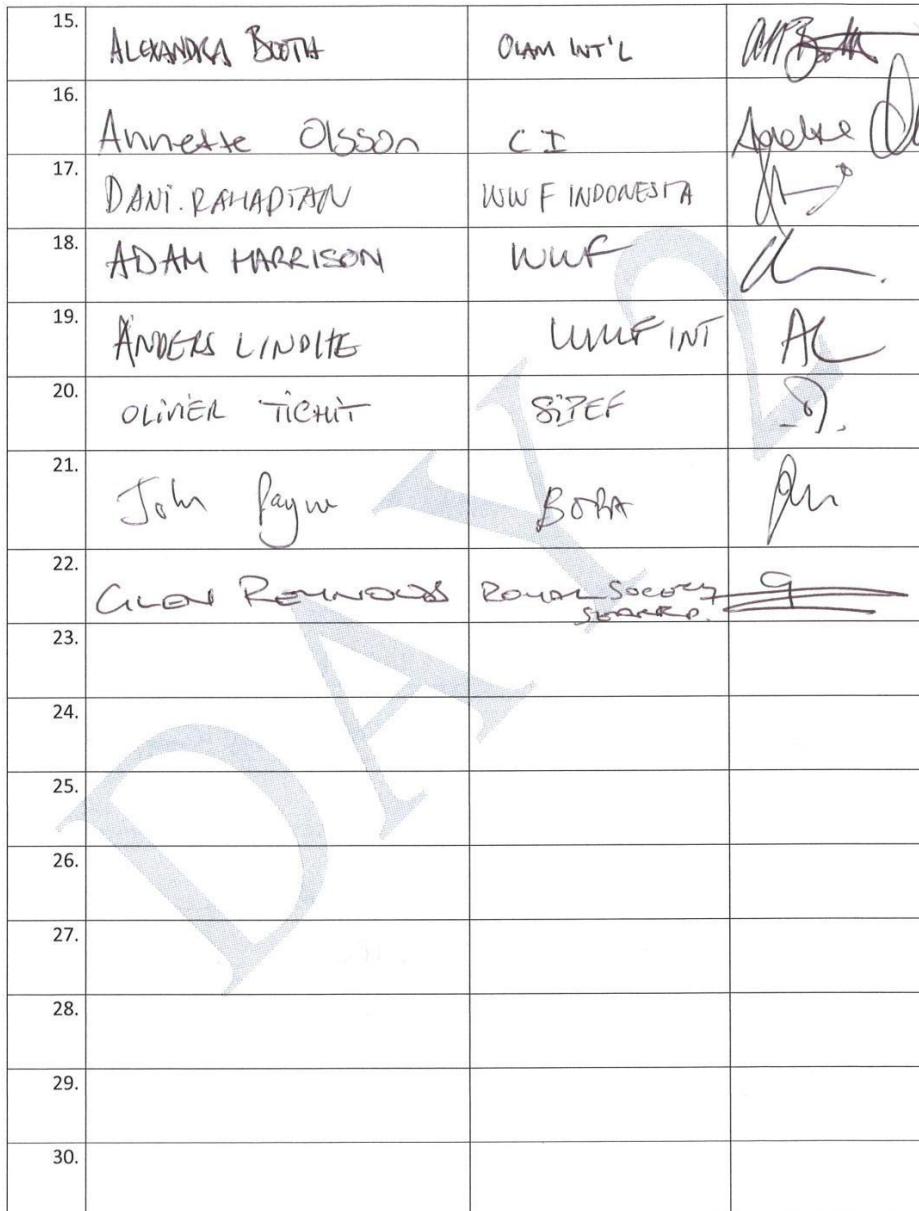 15. ALEXANDRA BOOTH OLAM INT'L
16. Annette Olsson CI
17. DANI. RAHADIAN WWF INDONESIA
18. ADAM HARRISON WWF
19. ANDERS LINDHE WWF INT AL
20. OLIVIER TICHIT SIPEF
21. John Payne BORA
22. GLEN REYNOLDS ROYAL SOCIETY
SEARRP.
23.
24.
25.
26.
27.
28.
29.
30.
DAY 2